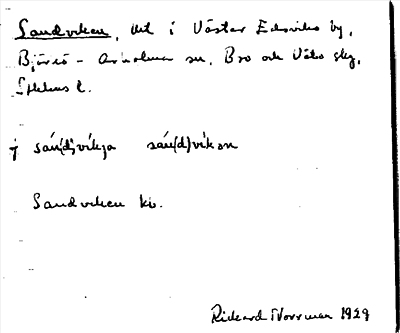 Sandviken, utt i Väster Edsviks by,
Björkö - Arholma sn, Bro och Vätö skg,
Sthlms l.
sán(d)vikja sán(d)vikən
Sandviken kb.
Rickard Norrman 1929